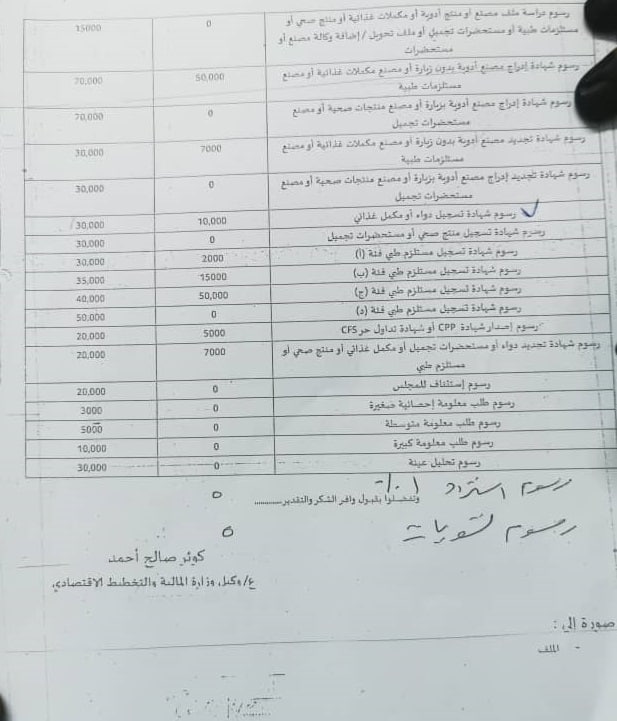 رسوم دراسة ملف مصنع أو منتج أدوية أو مكملات غذائية أو منتج صحي أو
مستلزمات طبية أو مستحضرات تجميل أو ملف تحويل / إضافة وكالة مصنع أو
مستحضرات
0
15000
رسوم شهادة إدراج مصنع أدوية بدون زيارة أو مصنع مكملات غذائية أو مصنع
مستلزمات طبية
50,000
70,000
رسوم شهادة إدراج مصنع أدوية بزيارة أو مصنع منتجات صحية أو مصنع
مستحضرات تجميل
0
70,000
رسوم شهادة تجديد مصنع أدوية بدون زيارة أو مصنع مكملات غذائية أو مصنع
مستلزمات طبية
7000
30,000
رسوم شهادة تجديد إدراج مصنع أدوية بزيارة أو مصنع منتجات صحية أو مصنع
مستحضرات تجميل
0
30,000
رسوم شهادة تسجيل دواء أو مكمل غذائي
10,000
30,000
رسوم شهادة تسجيل منتج صحي أو مستحضرات تجميل
0
30,000
رسوم شهادة تسجيل مستلزم طبي فئة (أ)
2000
30,000
رسوم شهادة تسجيل مستلزم طبي فئة (ب)
15000
35,000
رسوم شهادة تسجيل مستلزم طبي فئة (ج)
50,000
40,000
رسوم شهادة تسجيل مستلزم طبي فئة (د)
0
50,000
رسوم إصدار شهادة CPP أو شهادة تداول حر CFS
5000
20,000
رسوم شهادة تجديد دواء أو مستحضرات تجميل أو مكمل غذائي أو منتج صحي أو
مستلزم طبي
7000
20,000
رسوم إستئناف للمجلس
0
20,000
رسوم طلب معلومة إحصائية صغيرة
0
3000
رسوم طلب معلومة متوسطة
0
5000
رسوم طلب معلومة كبيرة
0
10,000
رسوم تحليل عينة
0
30,000
رسوم استرداد
وتفضلوا بقبول وافر الشكر والتقدير............
رسوم تسويات
كوثر صالح أحمد
ع/وكيل وزارة المالية والتخطيط الاقتصادي
صورة إلى :
- الملف